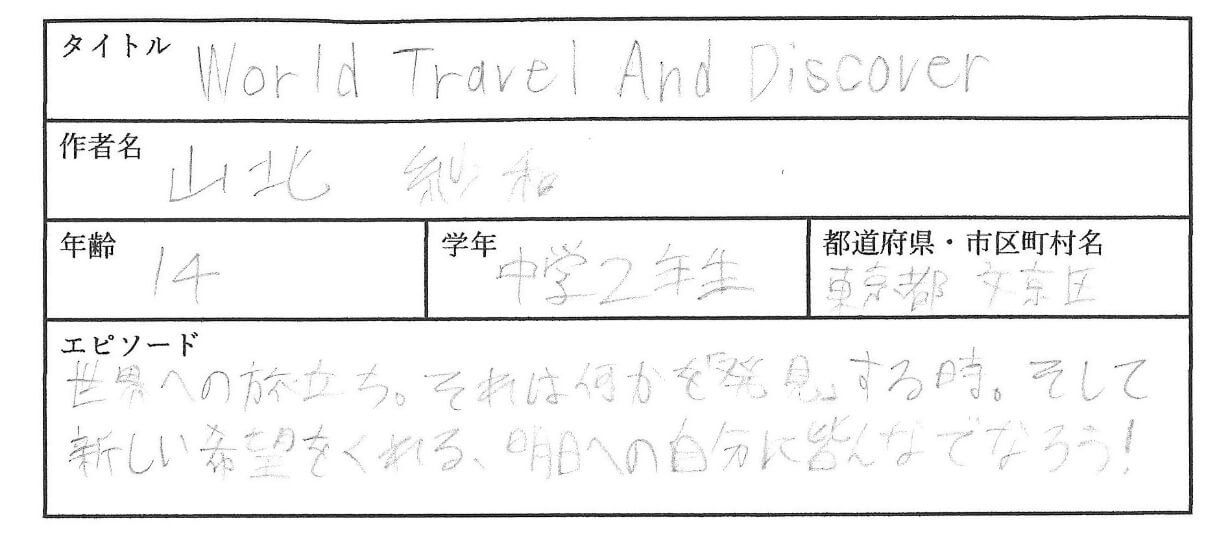 タイトル World Travel And Discover
作者名 山北 紗和
年齢 14 学年 中学2年生 都道府県・市区町村名 東京都 文京区
エピソード
世界への旅立ち。それは何かを「発見」する時。そして
新しい希望をくれる、明日への自分に皆んなでなろう!